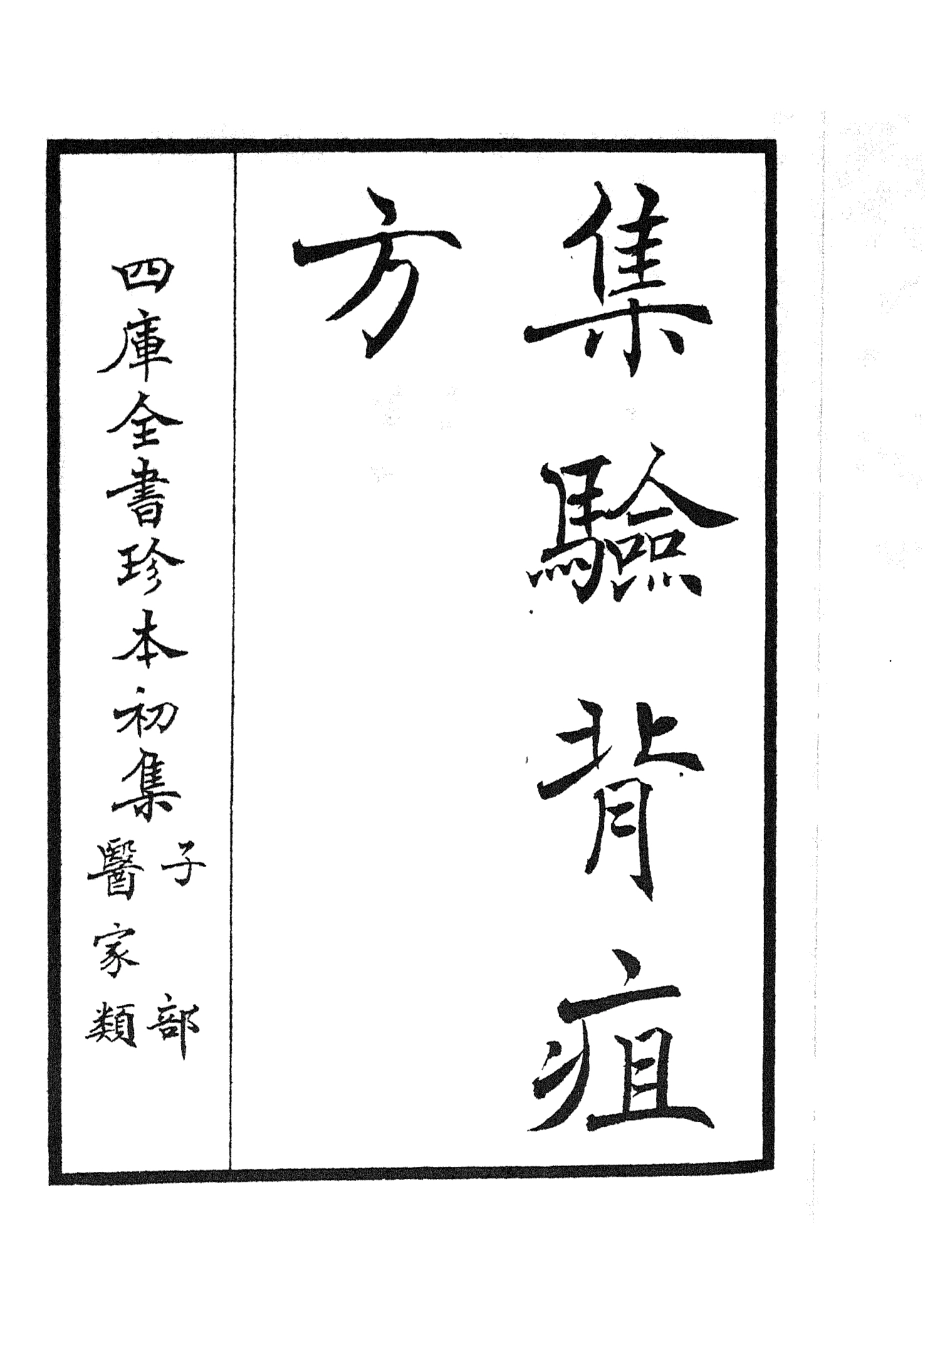 集驗背疽
方
四庫全書珍本初集
子部
醫家類